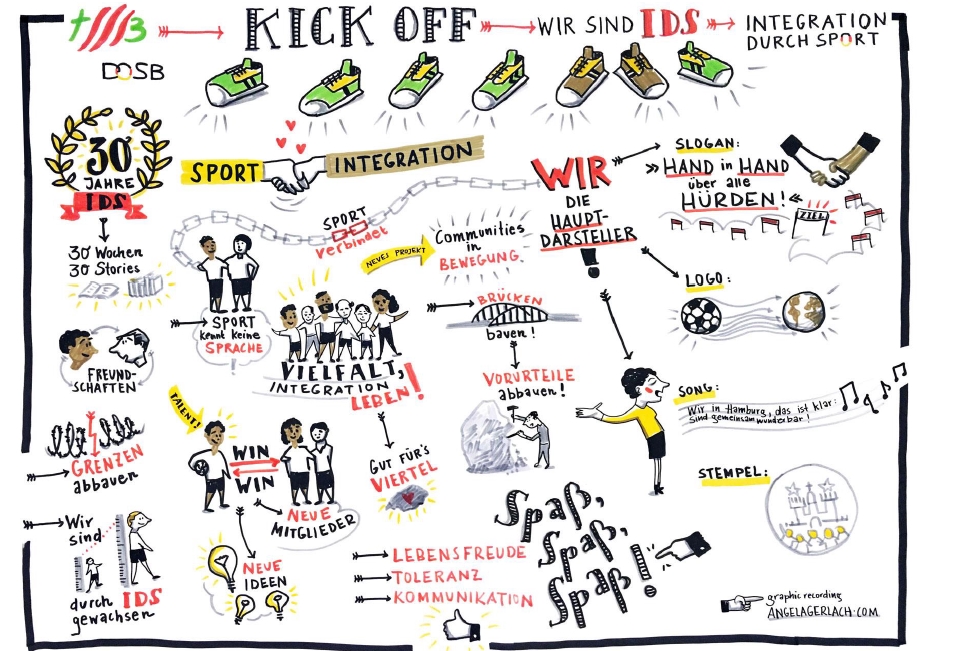 KICK OFF
WIR SIND IDS
INTEGRATION
DURCH SPORT
DOSB
30
JAHRE
IDS
30 Wochen
30 Stories
SPORT
INTEGRATION
SPORT
verbindet
NEUES PROJEKT
Communities
in
BEWEGUNG.
WIR
DIE
HAUPT-
DARSTELLER
!
SLOGAN:
HAND in HAND
über alle
HÜRDEN!
ZIEL
LOGO:
FREUND-
SCHAFTEN
SPORT
kennt keine
SPRACHE
!
VIELFALT,
INTEGRATION
LEBEN!
BRÜCKEN
bauen!
VORURTEILE
abbauen!
SONG:
Wir in Hamburg, das ist klar:
Sind gemeinsam wunderbar!
STEMPEL:
GRENZEN
abbauen
TALENT!
WIN
WIN
NEUE
MITGLIEDER
GUT FÜR'S
VIERTEL
Wir
sind
durch IDS
gewachsen
NEUE
IDEEN
LEBENSFREUDE
TOLERANZ
KOMMUNIKATION
Spaß,
Spaß,
Spaß!
graphic recording
ANGELAGERLACH.COM